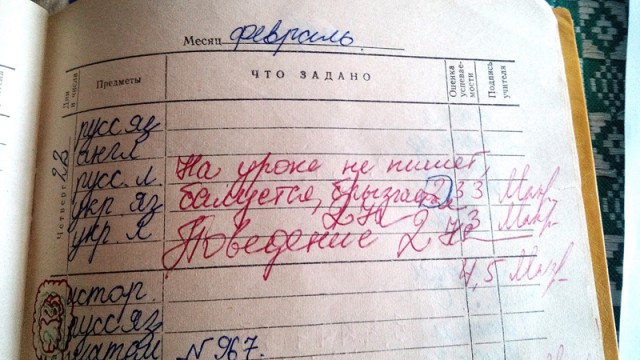 Месяц февраль
Дни и числа Предметы ЧТО ЗАДАНО Оценка успевае- мости Подпись учителя
Четверг 23
русс яз
англ
русс. л. На уроке не пишет,
укр. яз балуется, брызгается 2 3 3
укр. л 3
Поведение 2
4,5
истор.
русс яз
матом N 967.